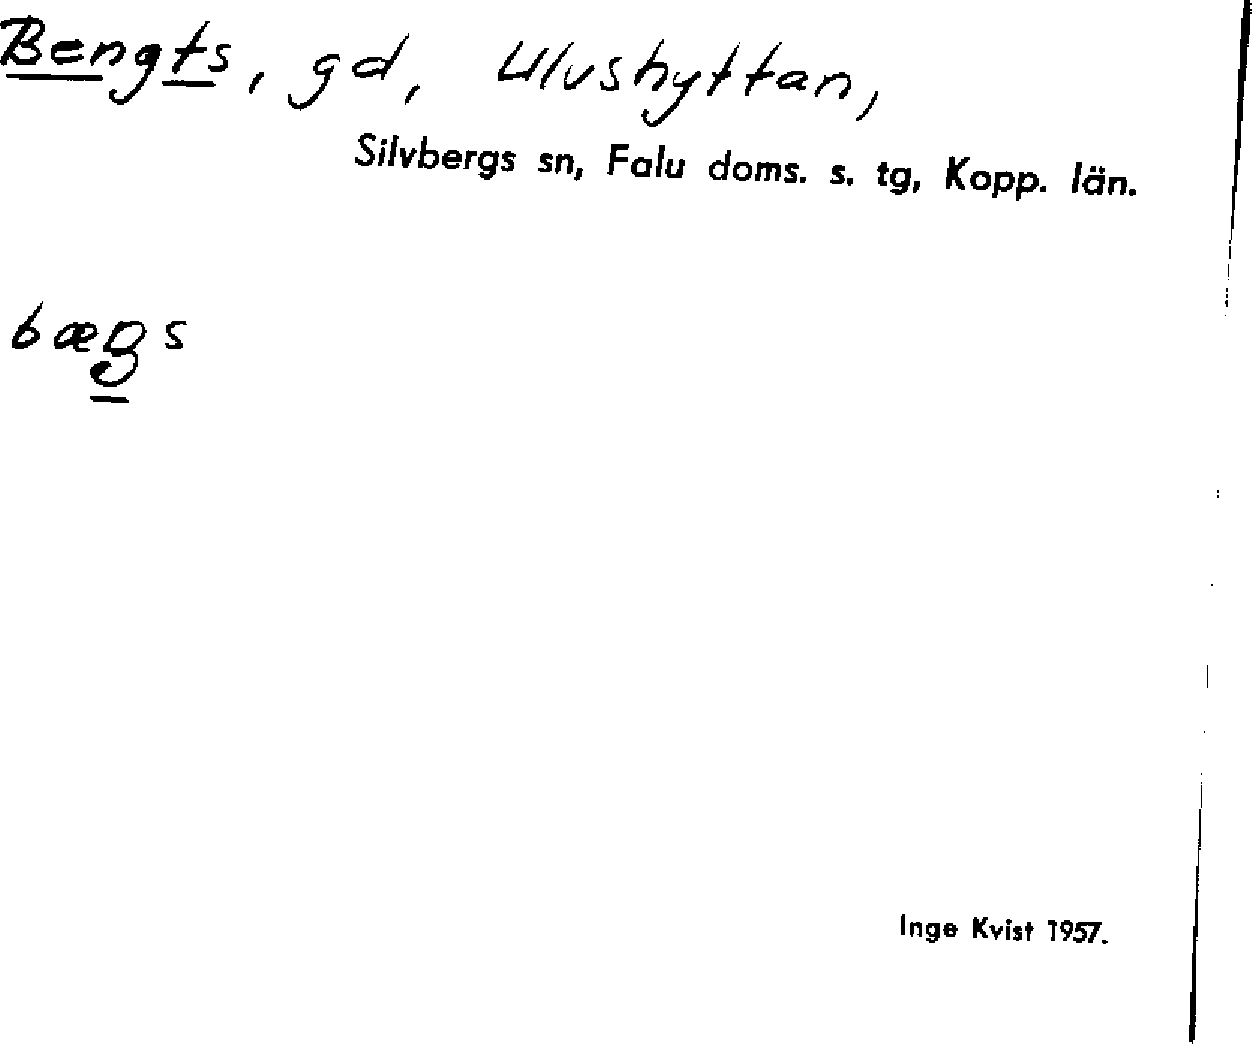 Bengts, gd, Ulvshyttan,
Silvbergs sn, Falu doms. s. tg, Kopp. län.
Inge Kvist 1957.